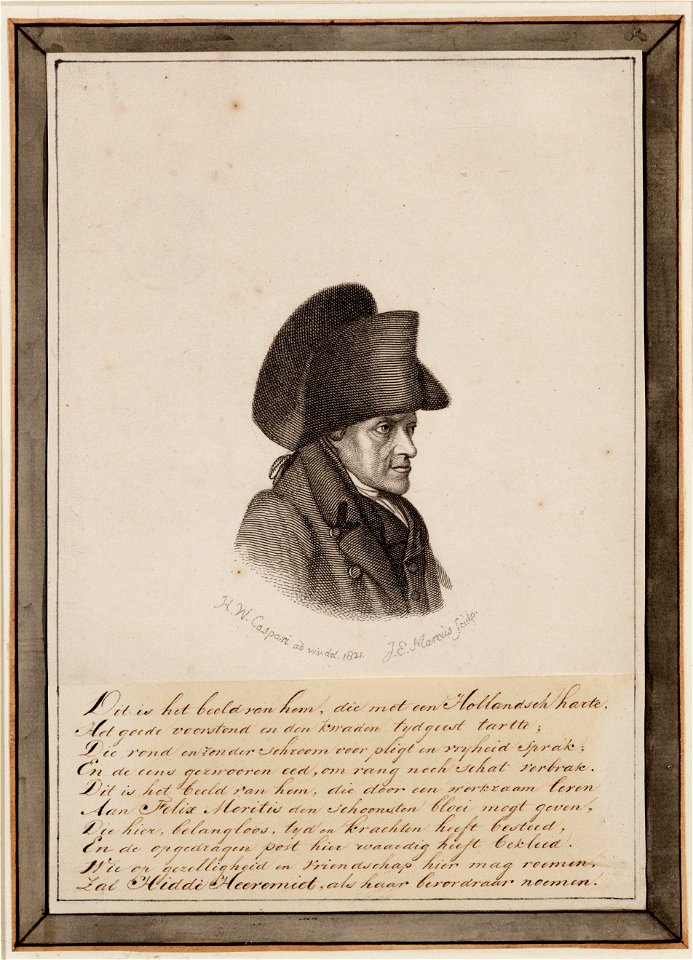 H. W. Caspari ad viv. del. 1821.
J. E. Marcus sculp.
Dit is het beeld van hem, die met een Hollandsch harte.
Het goede voorstond en den kwaden tydgeest tartte;
Die rond en zonder schroom voor pligt en vryheid sprak;
En de eens gezwooren eed, om rang noch schat verbrak.
Dit is het beeld van hem, die door een werkzaam leven
Aan Felix Meritis den schoonsten bloei mogt geven,
Die hier, belangloos, tyd en krachten heeft besteed,
En de opgedragen post hier waardig heeft bekleed.
Wie op gezelligheid en vriendschap hier mag roemen.
Zal Hidde Heeremiet, als haar bevordraar noemen.